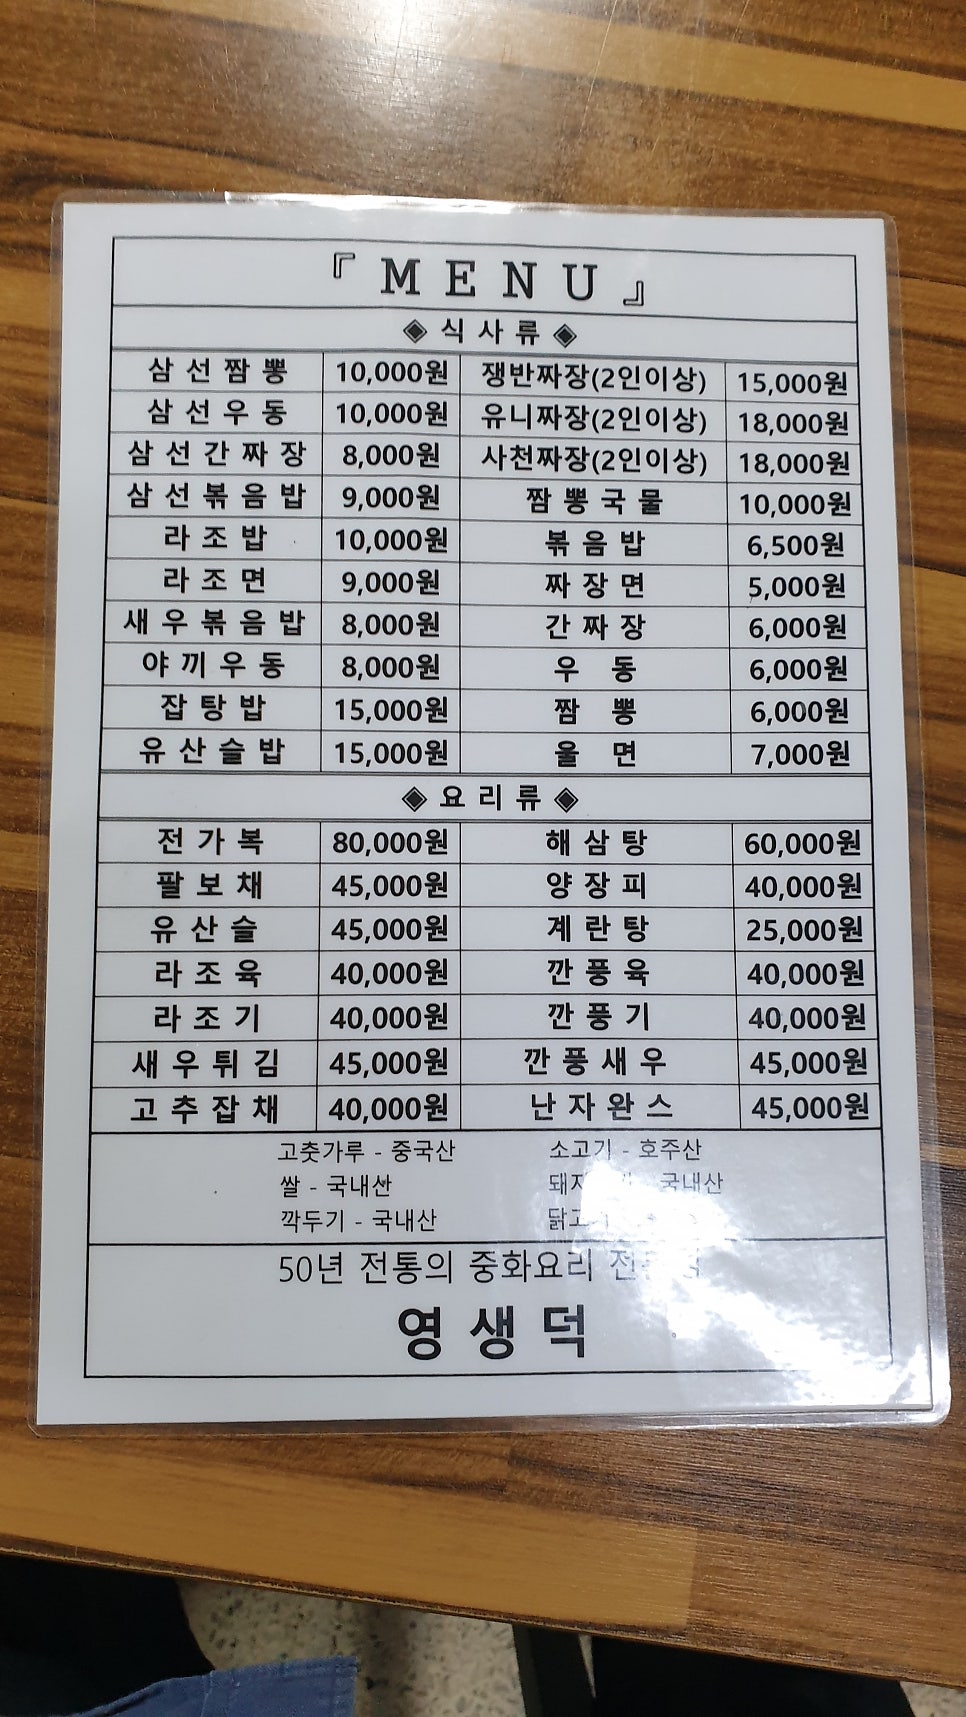 『MENU』
◈ 식사류 ◈
삼선짬뽕 10,000원 쟁반짜장(2인이상) 15,000원
삼선우동 10,000원 유니짜장(2인이상) 18,000원
삼선간짜장 8,000원 사천짜장(2인이상) 18,000원
삼선볶음밥 9,000원 짬뽕국물 10,000원
라조밥 10,000원 볶음밥 6,500원
라조면 9,000원 짜장면 5,000원
새우볶음밥 8,000원 간짜장 6,000원
야끼우동 8,000원 우동 6,000원
잡탕밥 15,000원 짬뽕 6,000원
유산슬밥 15,000원 울면 7,000원
◈ 요리류 ◈
전가복 80,000원 해삼탕 60,000원
팔보채 45,000원 양장피 40,000원
유산슬 45,000원 계란탕 25,000원
라조육 40,000원 깐풍육 40,000원
라조기 40,000원 깐풍기 40,000원
새우튀김 45,000원 깐풍새우 45,000원
고추잡채 40,000원 난자완스 45,000원
고춧가루 - 중국산 소고기 - 호주산
쌀 - 국내산 국내산
깍두기 - 국내산
50년 전통의 중화요리
영생덕